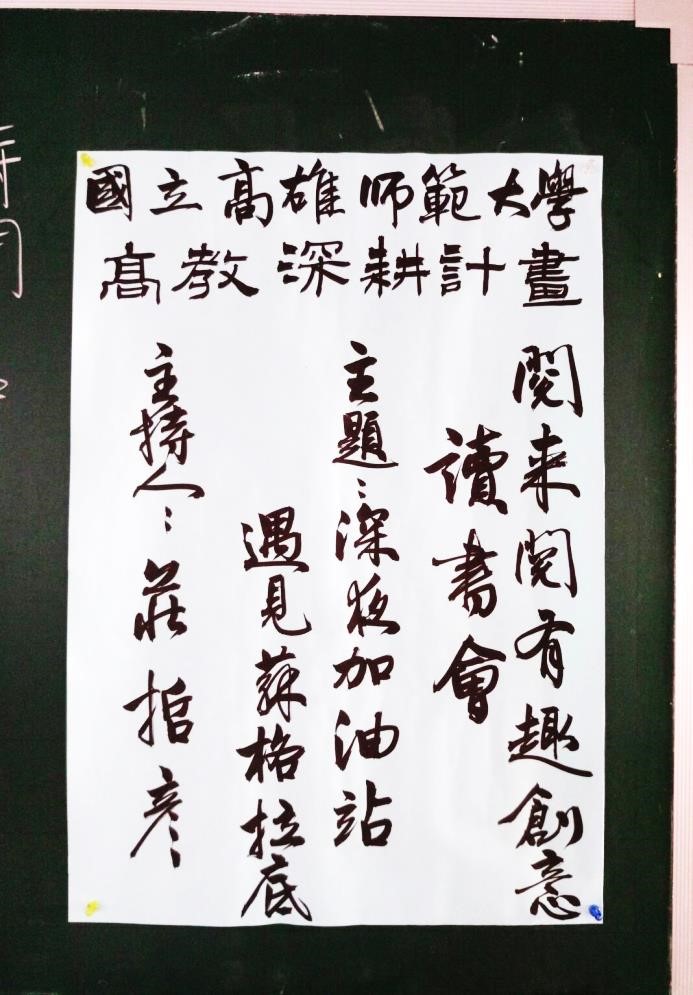 國立高雄師範大學
高教深耕計畫
閱來閱有趣創意
讀書會
主題：深夜加油站
遇見蘇格拉底
主持人：莊哲彥